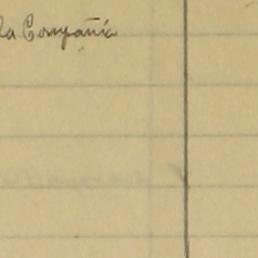 la Compañia